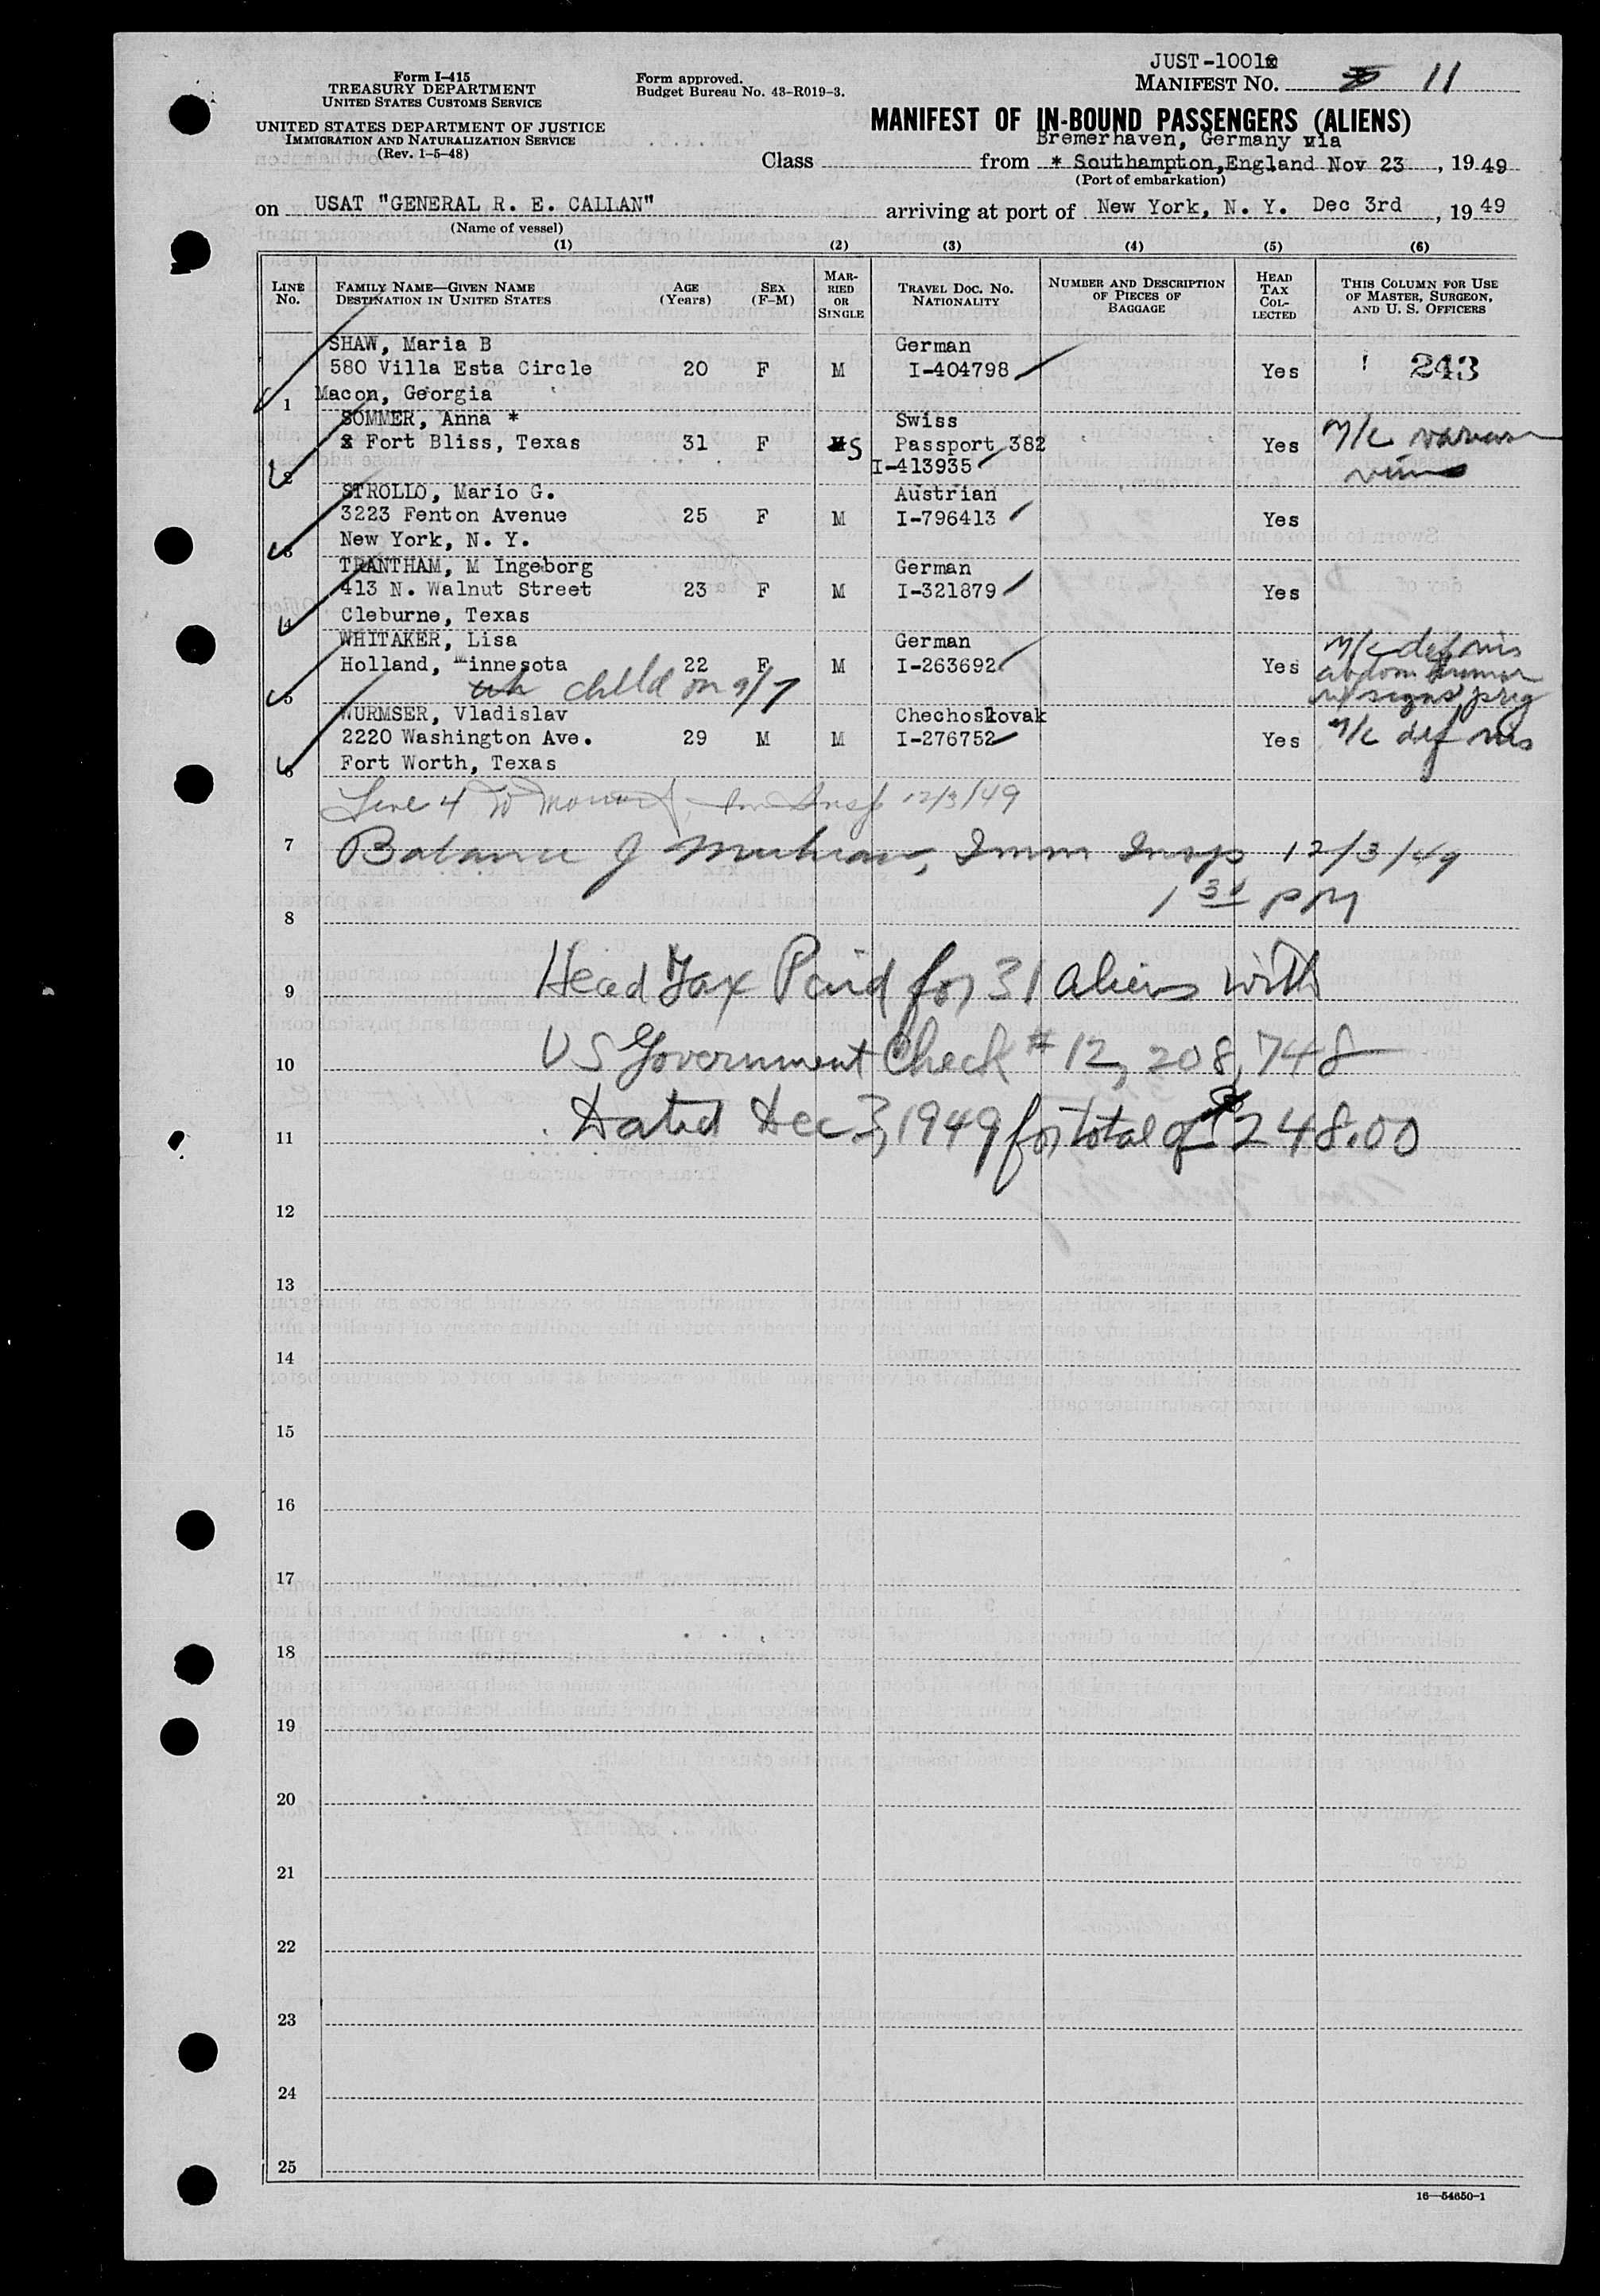 JUST-10012
Form I-415
TREASURY DEPARTMENT
UNITED STATES CUSTOMS SERVICE
Form approved.
Budget Bureau No. 43-R019-3.
MANIFEST NO. 11
UNITED STATES DEPARTMENT OF JUSTICE
IMMIGRATION AND NATURALIZATION SERVICE
(Rev. 1-5-48)
MANIFEST OF IN-BOUND PASSENGERS (ALIENS)
Bremerhaven, Germany via
Class from * Southampton,England Nov 23, 1949
(Port of embarkation)
on USAT "GENERAL R. E. CALLAN" arriving at port of New York, N. Y. Dec 3rd, 1949
(Name of vessel)
(1) (2) (3) (4) (5) (6)
LINE No. FAMILY NAME—GIVEN NAME DESTINATION IN UNITED STATES AGE (Years) SEX (F-M) MARRIED OR SINGLE TRAVEL DOC. NO. NATIONALITY NUMBER AND DESCRIPTION OF PIECES OF BAGGAGE HEAD TAX COLLECTED THIS COLUMN FOR USE OF MASTER, SURGEON, AND U. S. OFFICERS
SHAW, Maria B German
580 Villa Esta Circle 20 F M I-404798 Yes 243
1 Macon, Georgia
SOMMER, Anna * Swiss
Fort Bliss, Texas 31 F S Passport 382 Yes M/c varicose
2 I-413935 veins
STROLLO, Mario G. Austrian
3223 Fenton Avenue 25 F M I-796413 Yes
3 New York, N. Y.
TRANTHAM, M Ingeborg German
413 N. Walnut Street 23 F M I-321879 Yes
4 Cleburne, Texas
WHITAKER, Lisa German M/c def vis
Holland, Minnesota 22 F M I-263692 Yes abdom tumor
5 child on 9/7 signs preg
WURMSER, Vladislav Chechoslovak
2220 Washington Ave. 29 M M I-276752 Yes M/c def vis
6 Fort Worth, Texas
Line 4 Insp 12/3/49
7 Balance J Imm Insp 12/3/49
8 1 30 PM
9 Head Tax Paid for 31 aliens with
10 US Government Check # 12,208,748
11 Dated Dec 3, 1949 for total of $248.00
12
13
14
15
16
17
18
19
20
21
22
23
24
25
16—54650-1